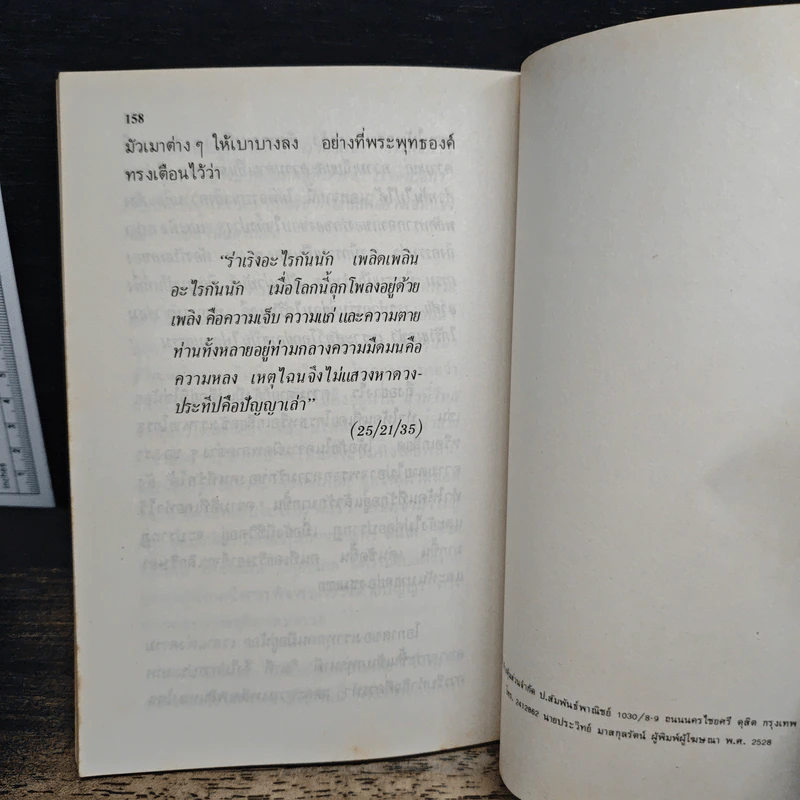 158
มัวเมาต่าง ๆ ให้เบาบางลง อย่างที่พระพุทธองค์
ทรงเตือนไว้ว่า
“ร่าเริงอะไรกันนัก เพลิดเพลิน
อะไรกันนัก เมื่อโลกนี้ลุกโพลงอยู่ด้วย
เพลิง คือความเจ็บ ความแก่ และความตาย
ท่านทั้งหลายอยู่ท่ามกลางความมืดมนคือ
ความหลง เหตุไฉนจึงไม่แสวงหาดวง-
ประทีปคือปัญญาเล่า”
(25/21/35)
ป.สัมพันธ์พาณิชย์ 1030/8-9 ถนนนครไชยศรี ดุสิต กรุงเทพ
โทร. 2412862 นายประวิทย์ มาสกุลรัตน์ ผู้พิมพ์ผู้โฆษณา พ.ศ. 2528
inches
1
2
3
4
5